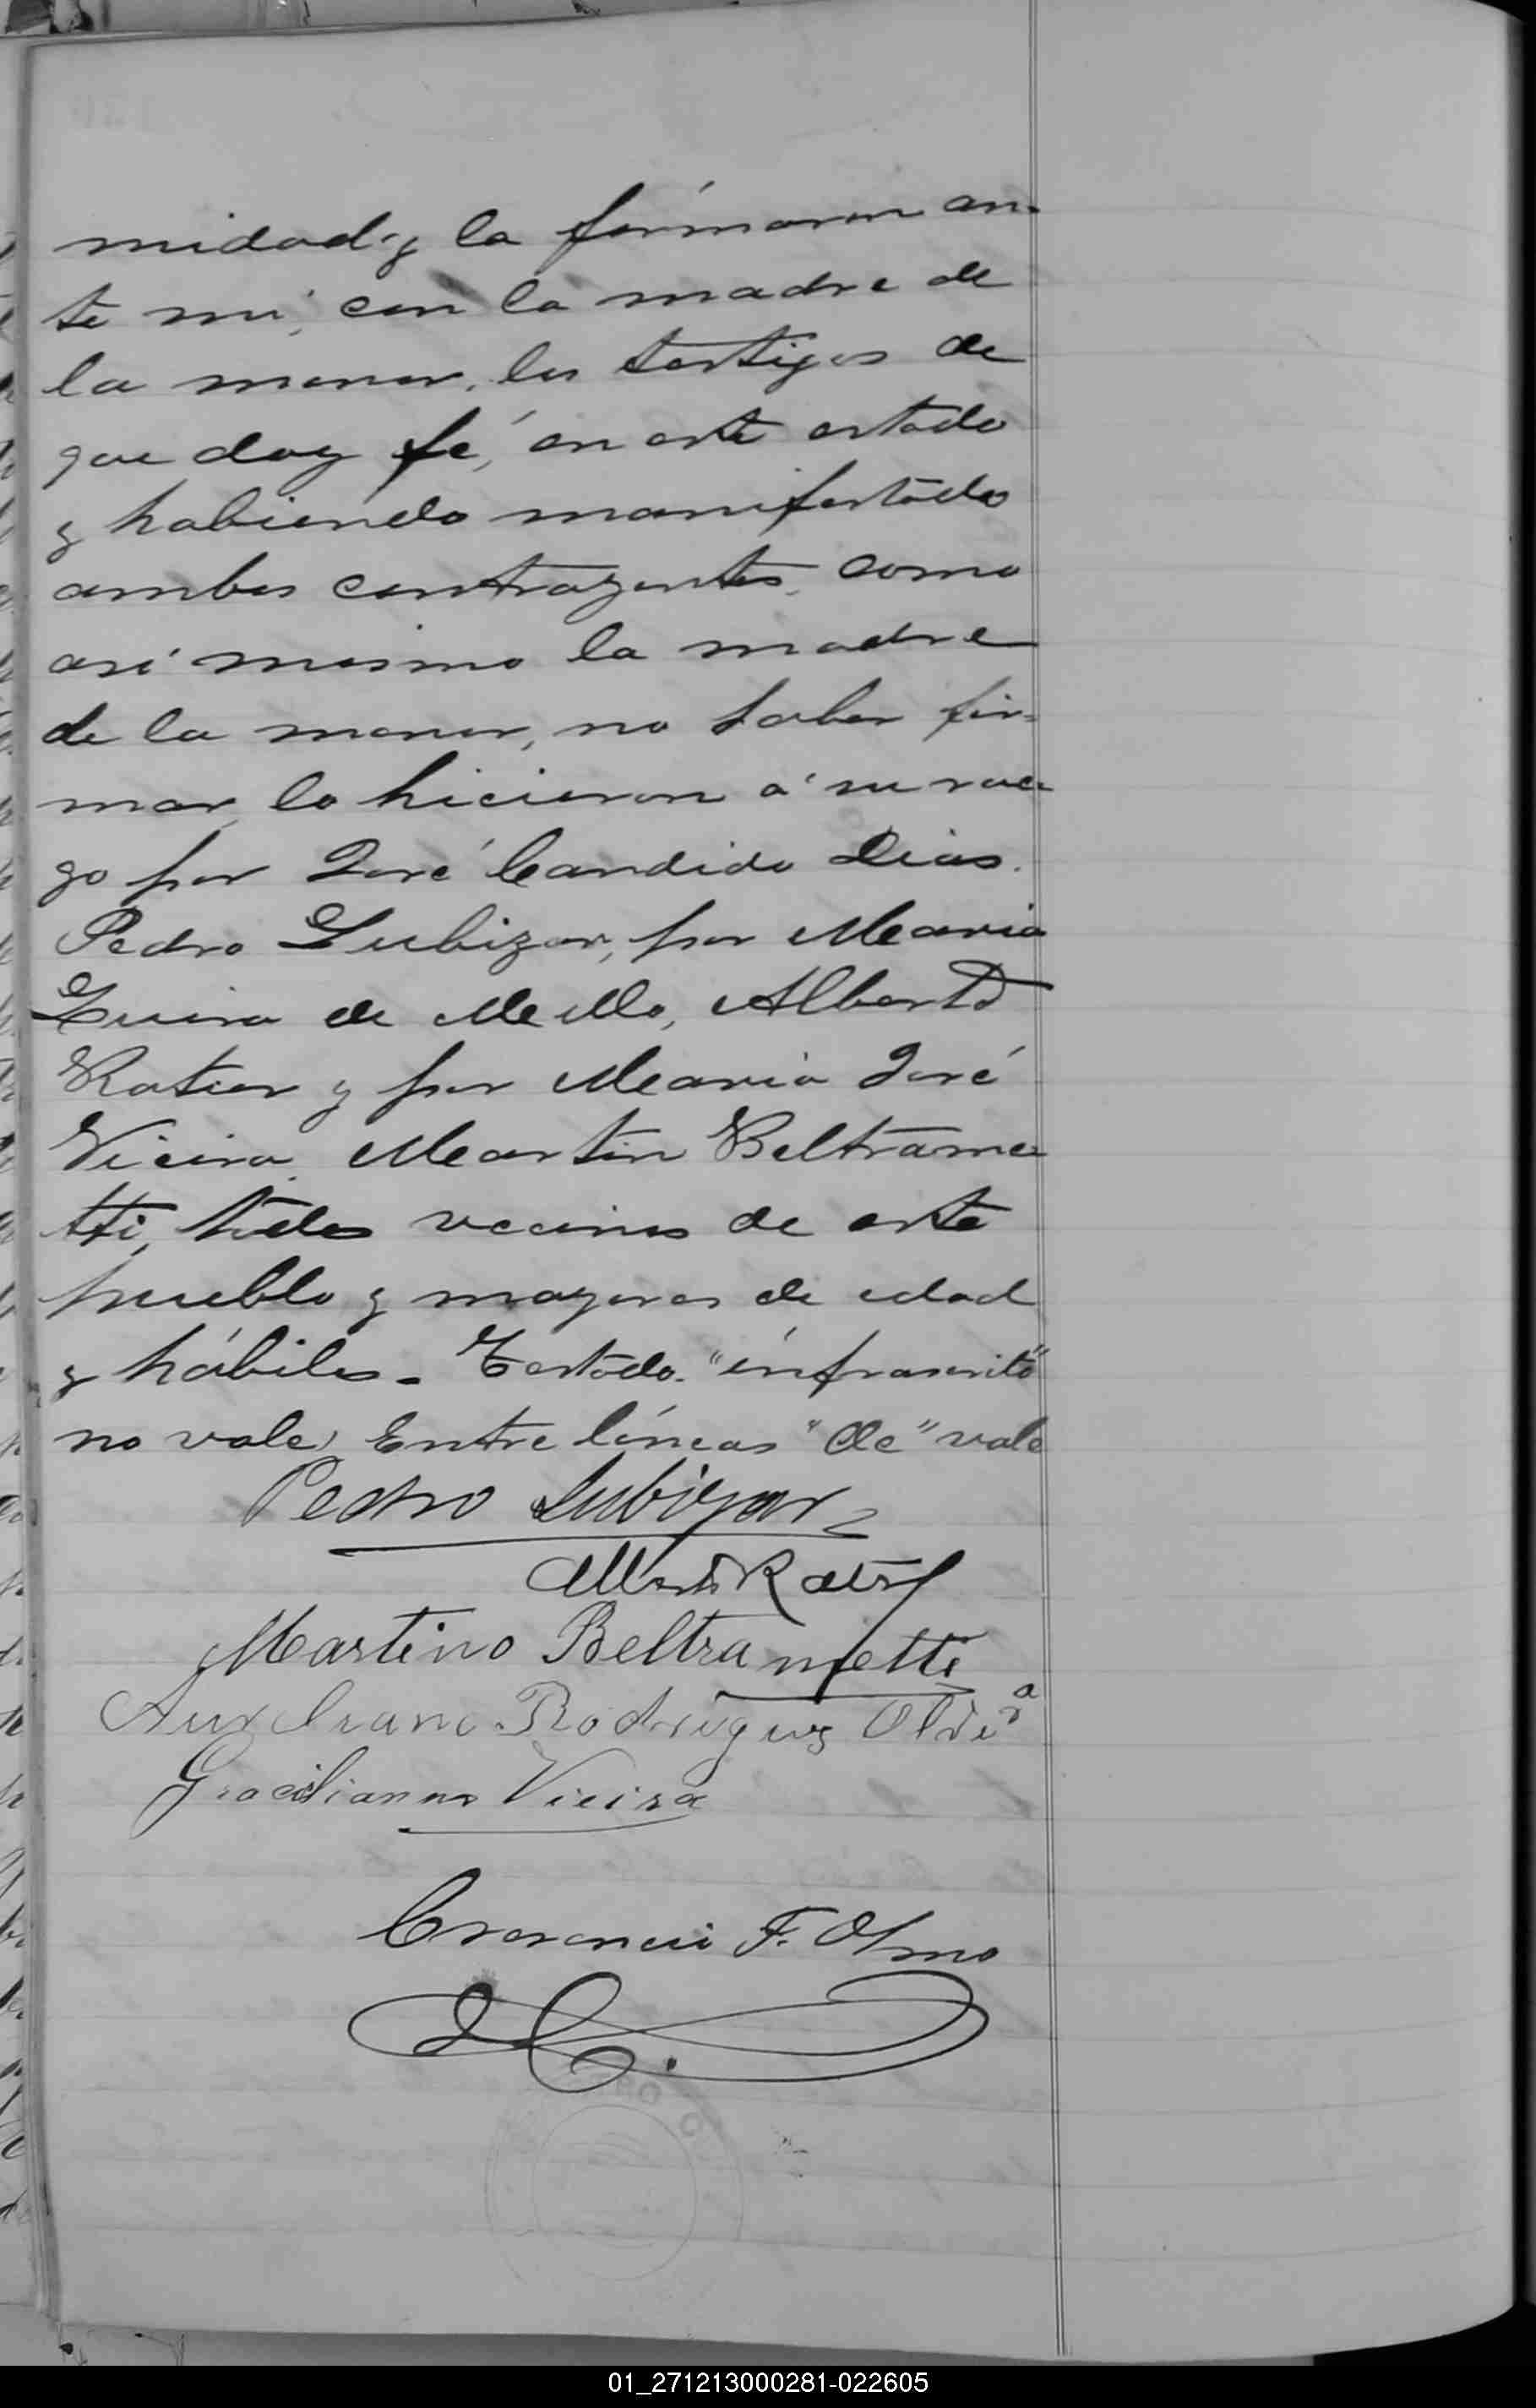 midad, y la firmaron an-
te mí, con la madre de
la menor, los testigos de
que doy fé, en este estado
y habiendo manifestado
ambos contrayentes, como
así mismo la madre
de la menor, no saber fir-
mar, lo hicieron á su rue
go por José Candido Dias.
Pedro Lubizar, por Maria
Luisa de Mello, Alberto
Ratier y por Maria José
Vieira Martin Beltrame
tti, todos vecinos de este
pueblo y mayores de edad
y hábiles. Testado. "infrascrito"
no vale, Entre líneas "de" vale
Pedro Lubizar
Alberto Ratier
Martino Beltrametti
Rodrigues
Gracilianno Vieira
F. Olmo
01_271213000281-022605